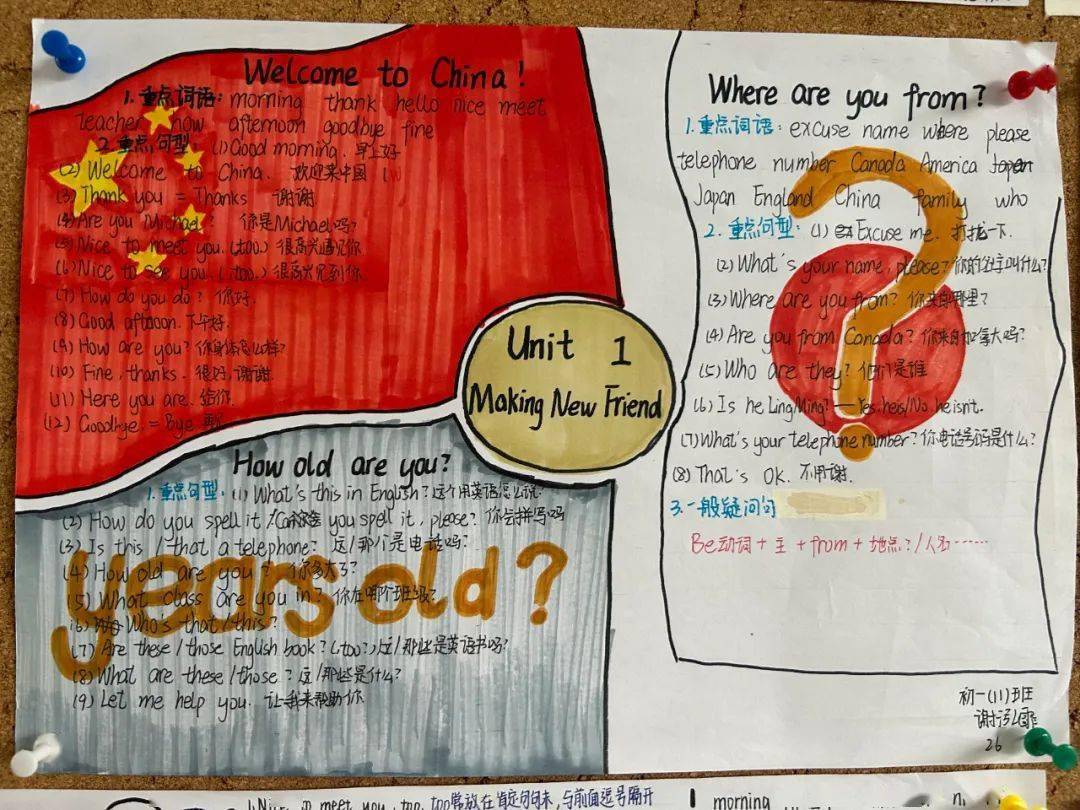 Welcome to China!
1.重点词语: morning thank hello nice meet
teacher how afternoon goodbye fine
2.重点句型: (1)Good morning. 早上好
(2) Welcome to China. 欢迎来中国!
(3) Thank you = Thanks 谢谢
(4)Are you Michael? 你是Michael吗?
(5)Nice to meet you.(too.) 很高兴遇见你
(6)Nice to see you.(too.) 很高兴见到你
(7) How do you do? 你好.
(8) Good aftnoon.下午好.
(9) How are you? 你身体怎么样?
(10) Fine, thanks. 很好,谢谢.
(11) Here you are. 给你.
(12) Goodbye. = Bye
Unit 1
Making New Friend
Where are you from?
1.重点词语: excuse name where please
telephone number Canada America
Japan England China family who
2.重点句型: (1) Excuse me. 打扰一下.
(2)What's your name, please? 你的名字叫什么?
(3)Where are you from? 你来自哪里?
(4) Are you from Canada? 你来自加拿大吗?
(5) Who are they? 他们是谁
(6) Is he LingMing? — Yes, he is/No, he isn't.
(7)What's your telephone number?你电话号码是什么?
(8) That's OK. 不用谢.
3.一般疑问句
Be动词 + 主 + from + 地点?/人名……
How old are you?
1.重点句型. (1) What's this in English?这个用英语怎么说
(2) How do you spell it / you spell it, please? 你会拼写吗
(3) Is this / that a telephone? 这/那个是电话吗?
(4) How old are you? 你多大了?
(5) What class are you in? 你在哪个班级?
(6) Who's that / this?
(7) Are these / those English book?(too?)这/那些是英语书吗?
(8)What are these / those? 这/那些是什么?
(9) Let me help you. 让我来帮助你
years old?
初一(11)班
谢泓霏
26
meet you, too. too常放在肯定句句末,与前面逗号隔开
morning